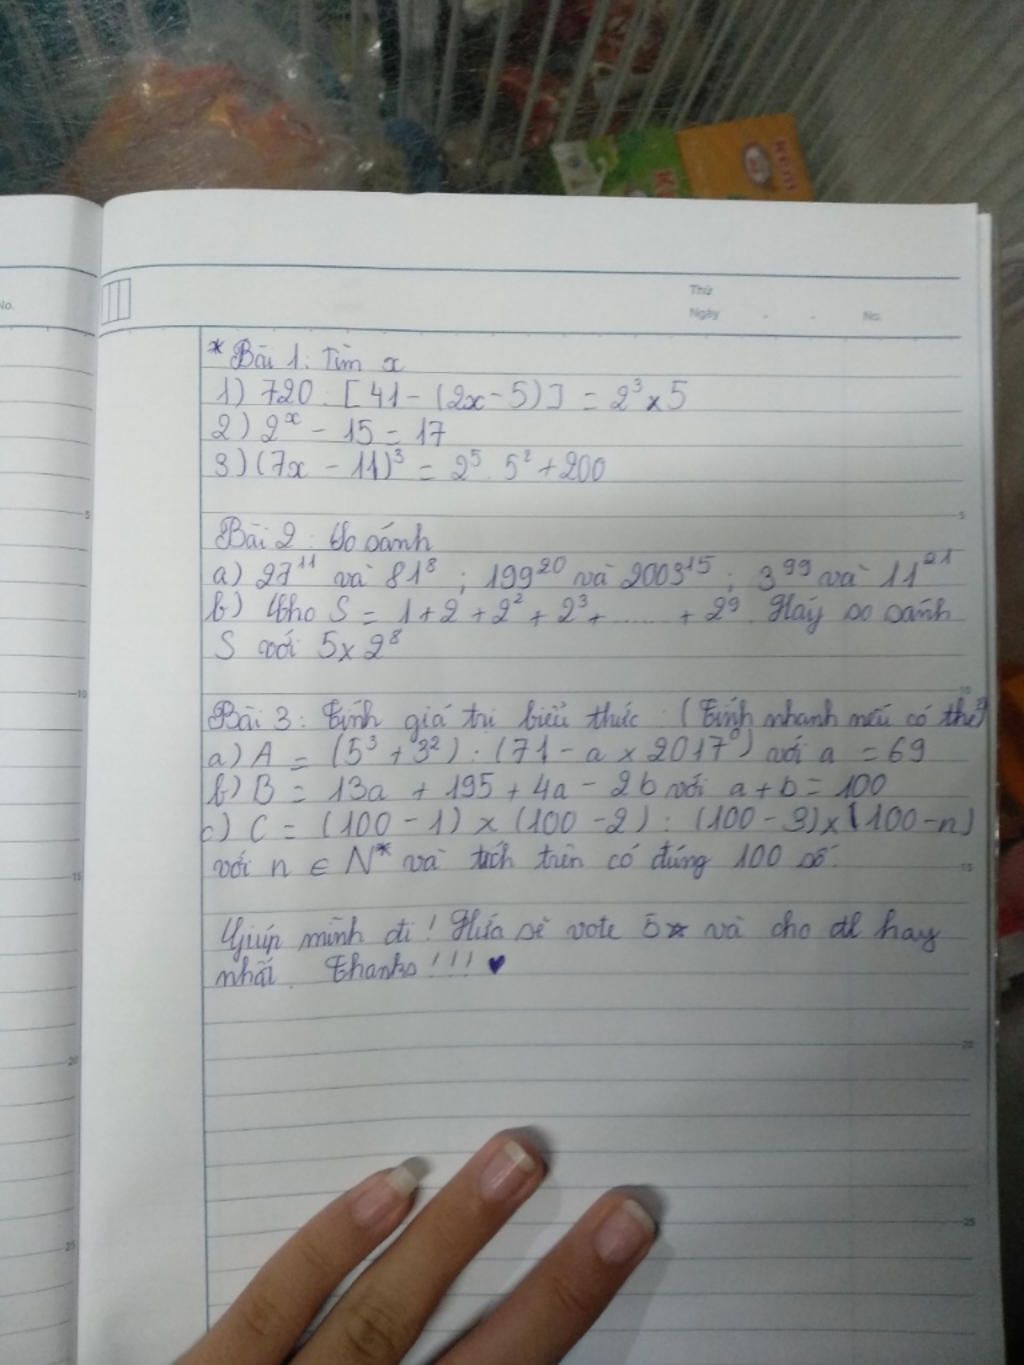 Thứ
Ngày . . No.
No.
* Bài 1: Tìm x
1) 720 : [41 - (2x - 5)] = 2³ x 5
2) 2ˣ - 15 = 17
3) (7x - 11)³ = 2⁵ . 5² + 200
5
Bài 2 : So sánh
a) 27¹¹ và 81⁸ ; 199²⁰ và 2003¹⁵ ; 3⁹⁹ và 11²¹
b) Cho S = 1 + 2 + 2² + 2³ + ..... + 2⁹. Hãy so sánh
S với 5 x 2⁸
10
Bài 3 : Tính giá trị biểu thức : (Tính nhanh nếu có thể)
a) A = (5³ + 3²) : (71 - a x 2017⁰) với a = 69
b) B = 13a + 19b + 4a - 2b với a + b = 100
c) C = (100 - 1) x (100 - 2) . (100 - 3) x (100 - n)
với n ∈ N* và tích trên có đúng 100 số.
15
Giúp mình đi ! Hứa sẽ vote 5* và cho đl hay
nhất. Thanks !!! ♥
20
25